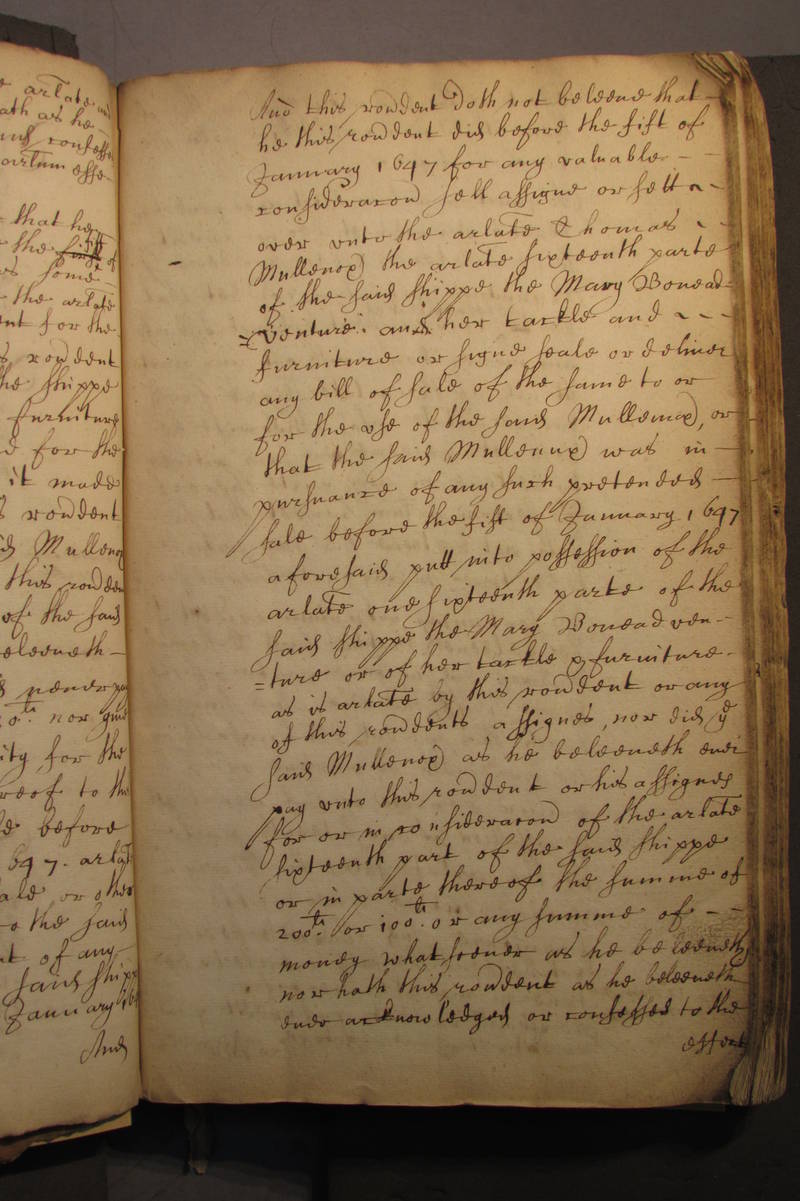 e artate
ath as he
and confesse
artum esse
that he
the fift of
some
the artate
ent for the
rondent
the shippe
furniture
for the
it made
rondent
Mullenox
this ronden
of the said
beleeueth
neuer pay
nor giue
ity for the
reof to the
before
647. artate
ale or other
to the said
nt of any
said shipp
January 164
And
And this rondent doth not beleeue that
he this rondent did before the fift of
January 1647 for any valuable
consideracon sell assigne or sett
over vnto the artate Thomas
Mullenox the artate sixteenth parte
of the said shippe the Mary Bonead=
=venture and her tackle and
furniture or signe seale or deliuer
any bill of sale of the same to or
for the vse of the said Mullenox, or
that the said Mullenux was in
pursuance of any such pretended
sale before the fift of January 1647
aforesaid putt into possession of the
artate one sixteenth parte of the
said shippe the Mary Boneadven-
=ture or of her tackle & furniture
as is artate by this rondent or any
of this rondents assignes, nor did ye
said Mullenox as he beleeueth euer
pay vnto this rondent or his assignes
for or in consideracon of the artate
sixteenth part of the said shippe
or in parte thereof the summe of
200li. or 100li. or any summe of
money whatsoeuer as he beleeueth
nor hath this rondent as he beleeueth
euer acknowledged or confessed to the
effect